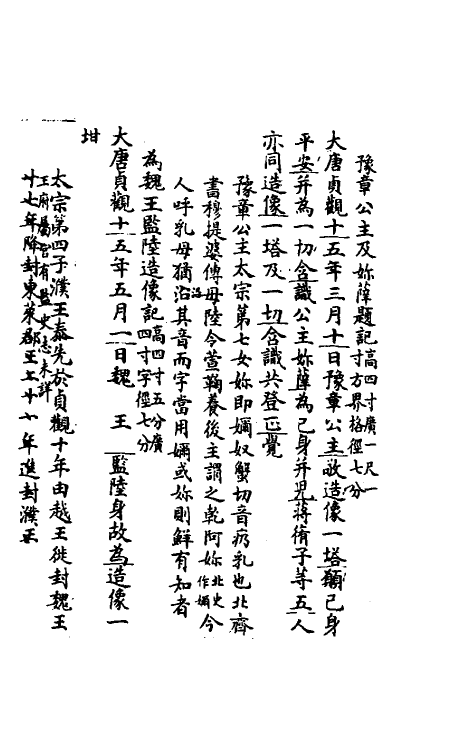 豫章公主及妳薛題記高四寸廣一尺一寸方界格徑七分
大唐貞觀十五年三月十日豫章公主敬造像一塔願己身
平安并為一切含識公主妳薛為己身并児蔣脩子等五人
亦同造像一塔及一切含識共登正覺
豫章公主太宗第七女妳即嬭奴蟹切音疓乳也北齊
書穆提婆傳母陸令萱鞠養後主謂之乾阿妳北史作嬭今
人呼乳母猶沿其音而字當用嬭或妳則鮮有知者
為魏王監陸造像記高四寸五分廣四寸字徑七分
大唐貞觀十五年五月一日魏 王 監陸身故為造像一
坩
太宗第四子濮王泰先於貞觀十年由越王徙封魏王
王府屬官有監史志未詳
廿七年降封東萊郡王 年進封濮王